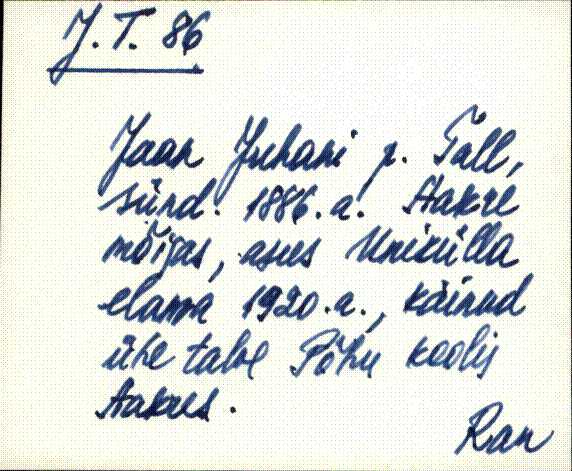 J. T. 86
Jaan Juhani p. Täll,
sünd. 1886. a. Aakre
mõisas, asus Unikülla
elama 1920. a., käinud
ühe talve Põhu koolis
Aakres.
Ran